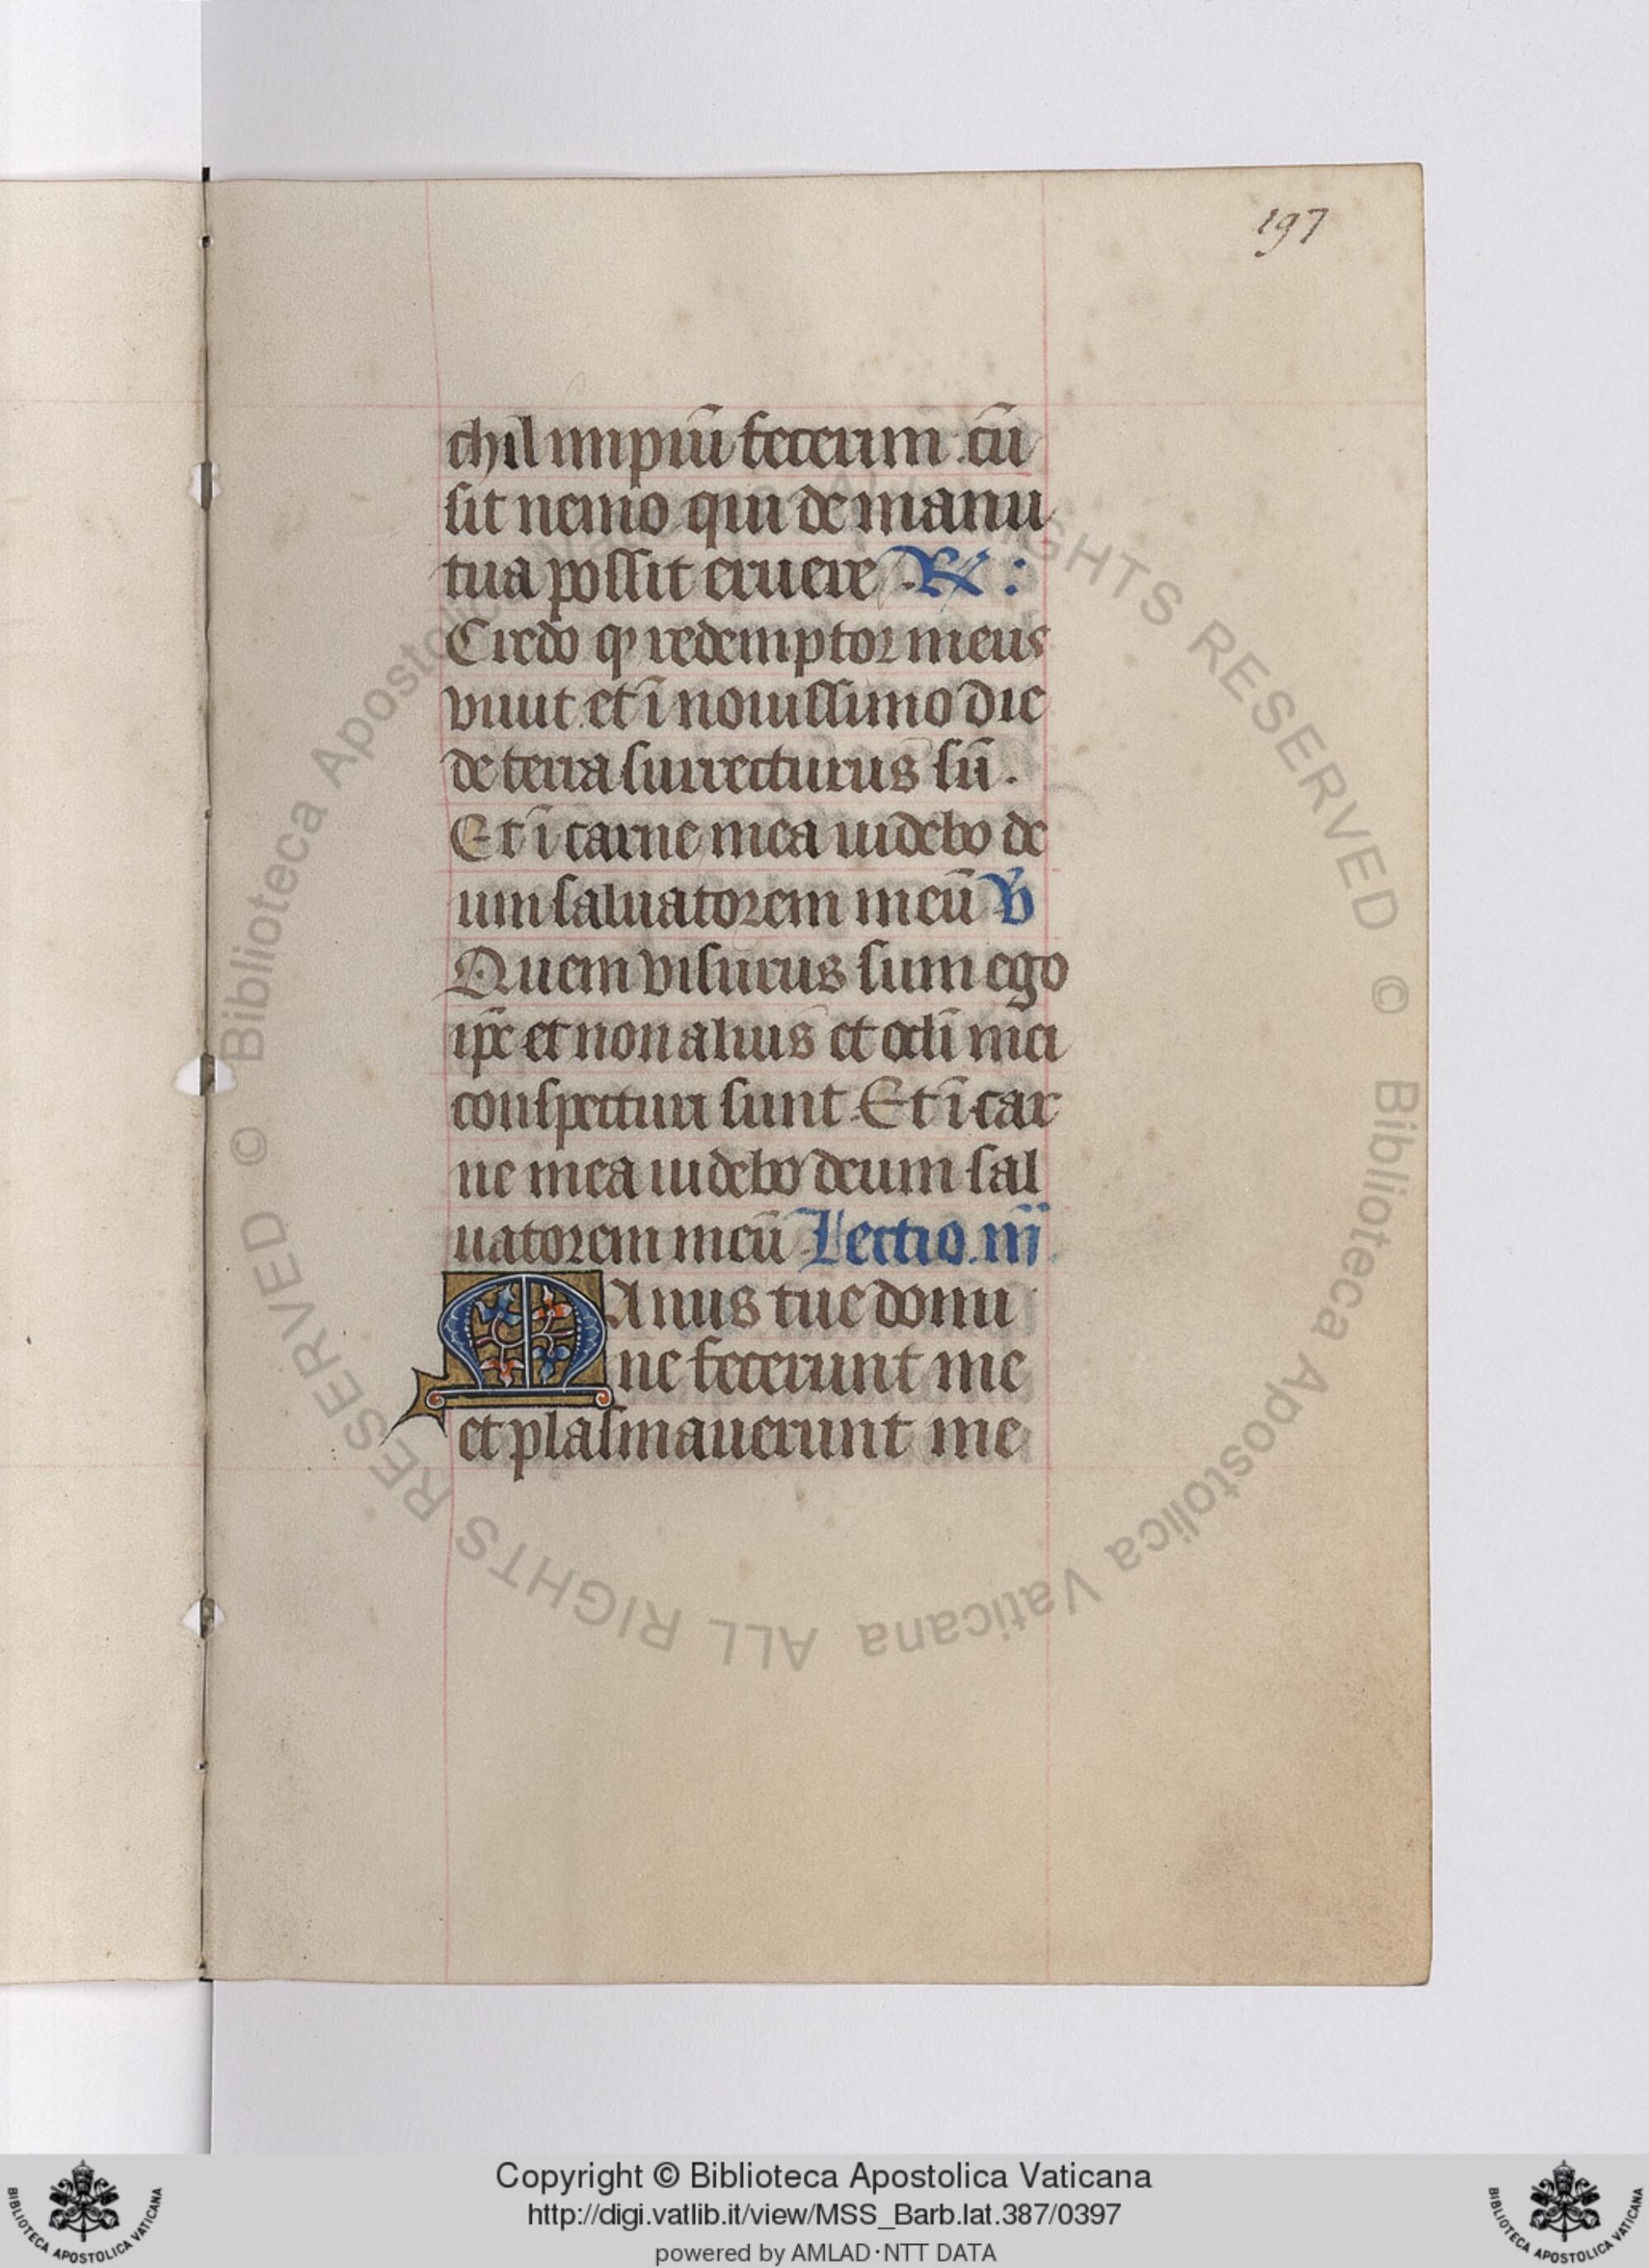 197
chil impiū fecerim cū
sit nemo qui de manu
tua possit eruere ℟ :
Credo ꝙ redemptor meus
viuit et ī nouissimo die
de terra surrecturus sū .
Et ī carne mea uidebo de
um saluatorem meū ℣
Quem visurus sum ego
ip̄e et non alius et oc̄li mei
conspecturi sunt Et ī car
ne mea uidebo deum sal
uatorem meū Lectio .iii
Manus tue domi
ne fecerunt me
et plasmauerunt me
© Biblioteca Apostolica Vaticana ALL RIGHTS RESERVED © Biblioteca Apostolica Vaticana ALL RIGHTS RESERVED
Copyright © Biblioteca Apostolica Vaticana
http://digi.vatlib.it/view/MSS_Barb.lat.387/0397
powered by AMLAD·NTT DATA
BIBLIOTECA APOSTOLICA VATICANA
BIBLIOTECA APOSTOLICA VATICANA